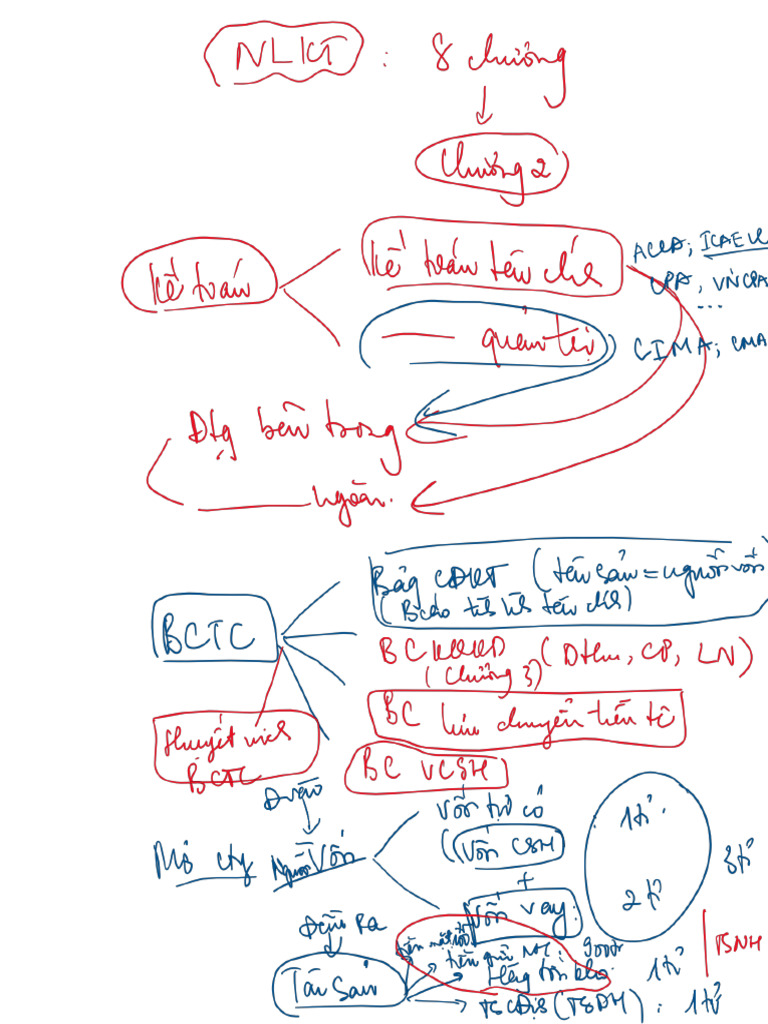 NLKT : 8 chương
Chương 2
Kế toán
Kế toán tài chính
ACCA; ICAEW
CPA, VNCPA
...
quản trị
CIMA; CMA
Đtg bên trong
ngoài.
Bảng CĐKT (tài sản = nguồn vốn
(Bcáo tình hình tài chính)
BCTC
BC KQKD (Dthu, CP, LN)
(Chương 3)
BC lưu chuyển tiền tệ
Thuyết minh
BCTC
BC VCSH
Đ vào
Vốn tự có
(Vốn CSH
1 tỉ
Mở cty Nguồn Vốn
3 tỉ
+
Vốn vay:
2 tỉ
Đầu Ra
tiền mặt
tiền gửi NH:
Hàng tồn kho:
1 tỉ
TSNH
Tài Sản
TSCĐ (TSDH) : 1 tỉ